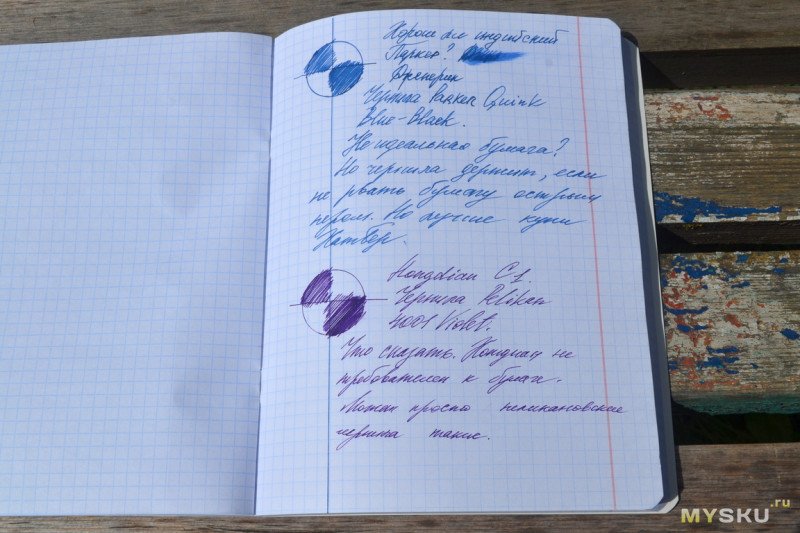 Хорош ли индийский
Паркер?
Френдрик
Чернила Parker Quink
Blue-Black.
Не идеальная бумага?
Но чернила держит, если
не рвать бумагу острым
пером. Но лучше купи
Хатбер.
Hongdian C1.
Чернила Pelikan
4001 Violet.
Что сказать. Хондиан не
требователен к бумаге.
Может просто пеликановские
чернила такие.
MYSKU.ru